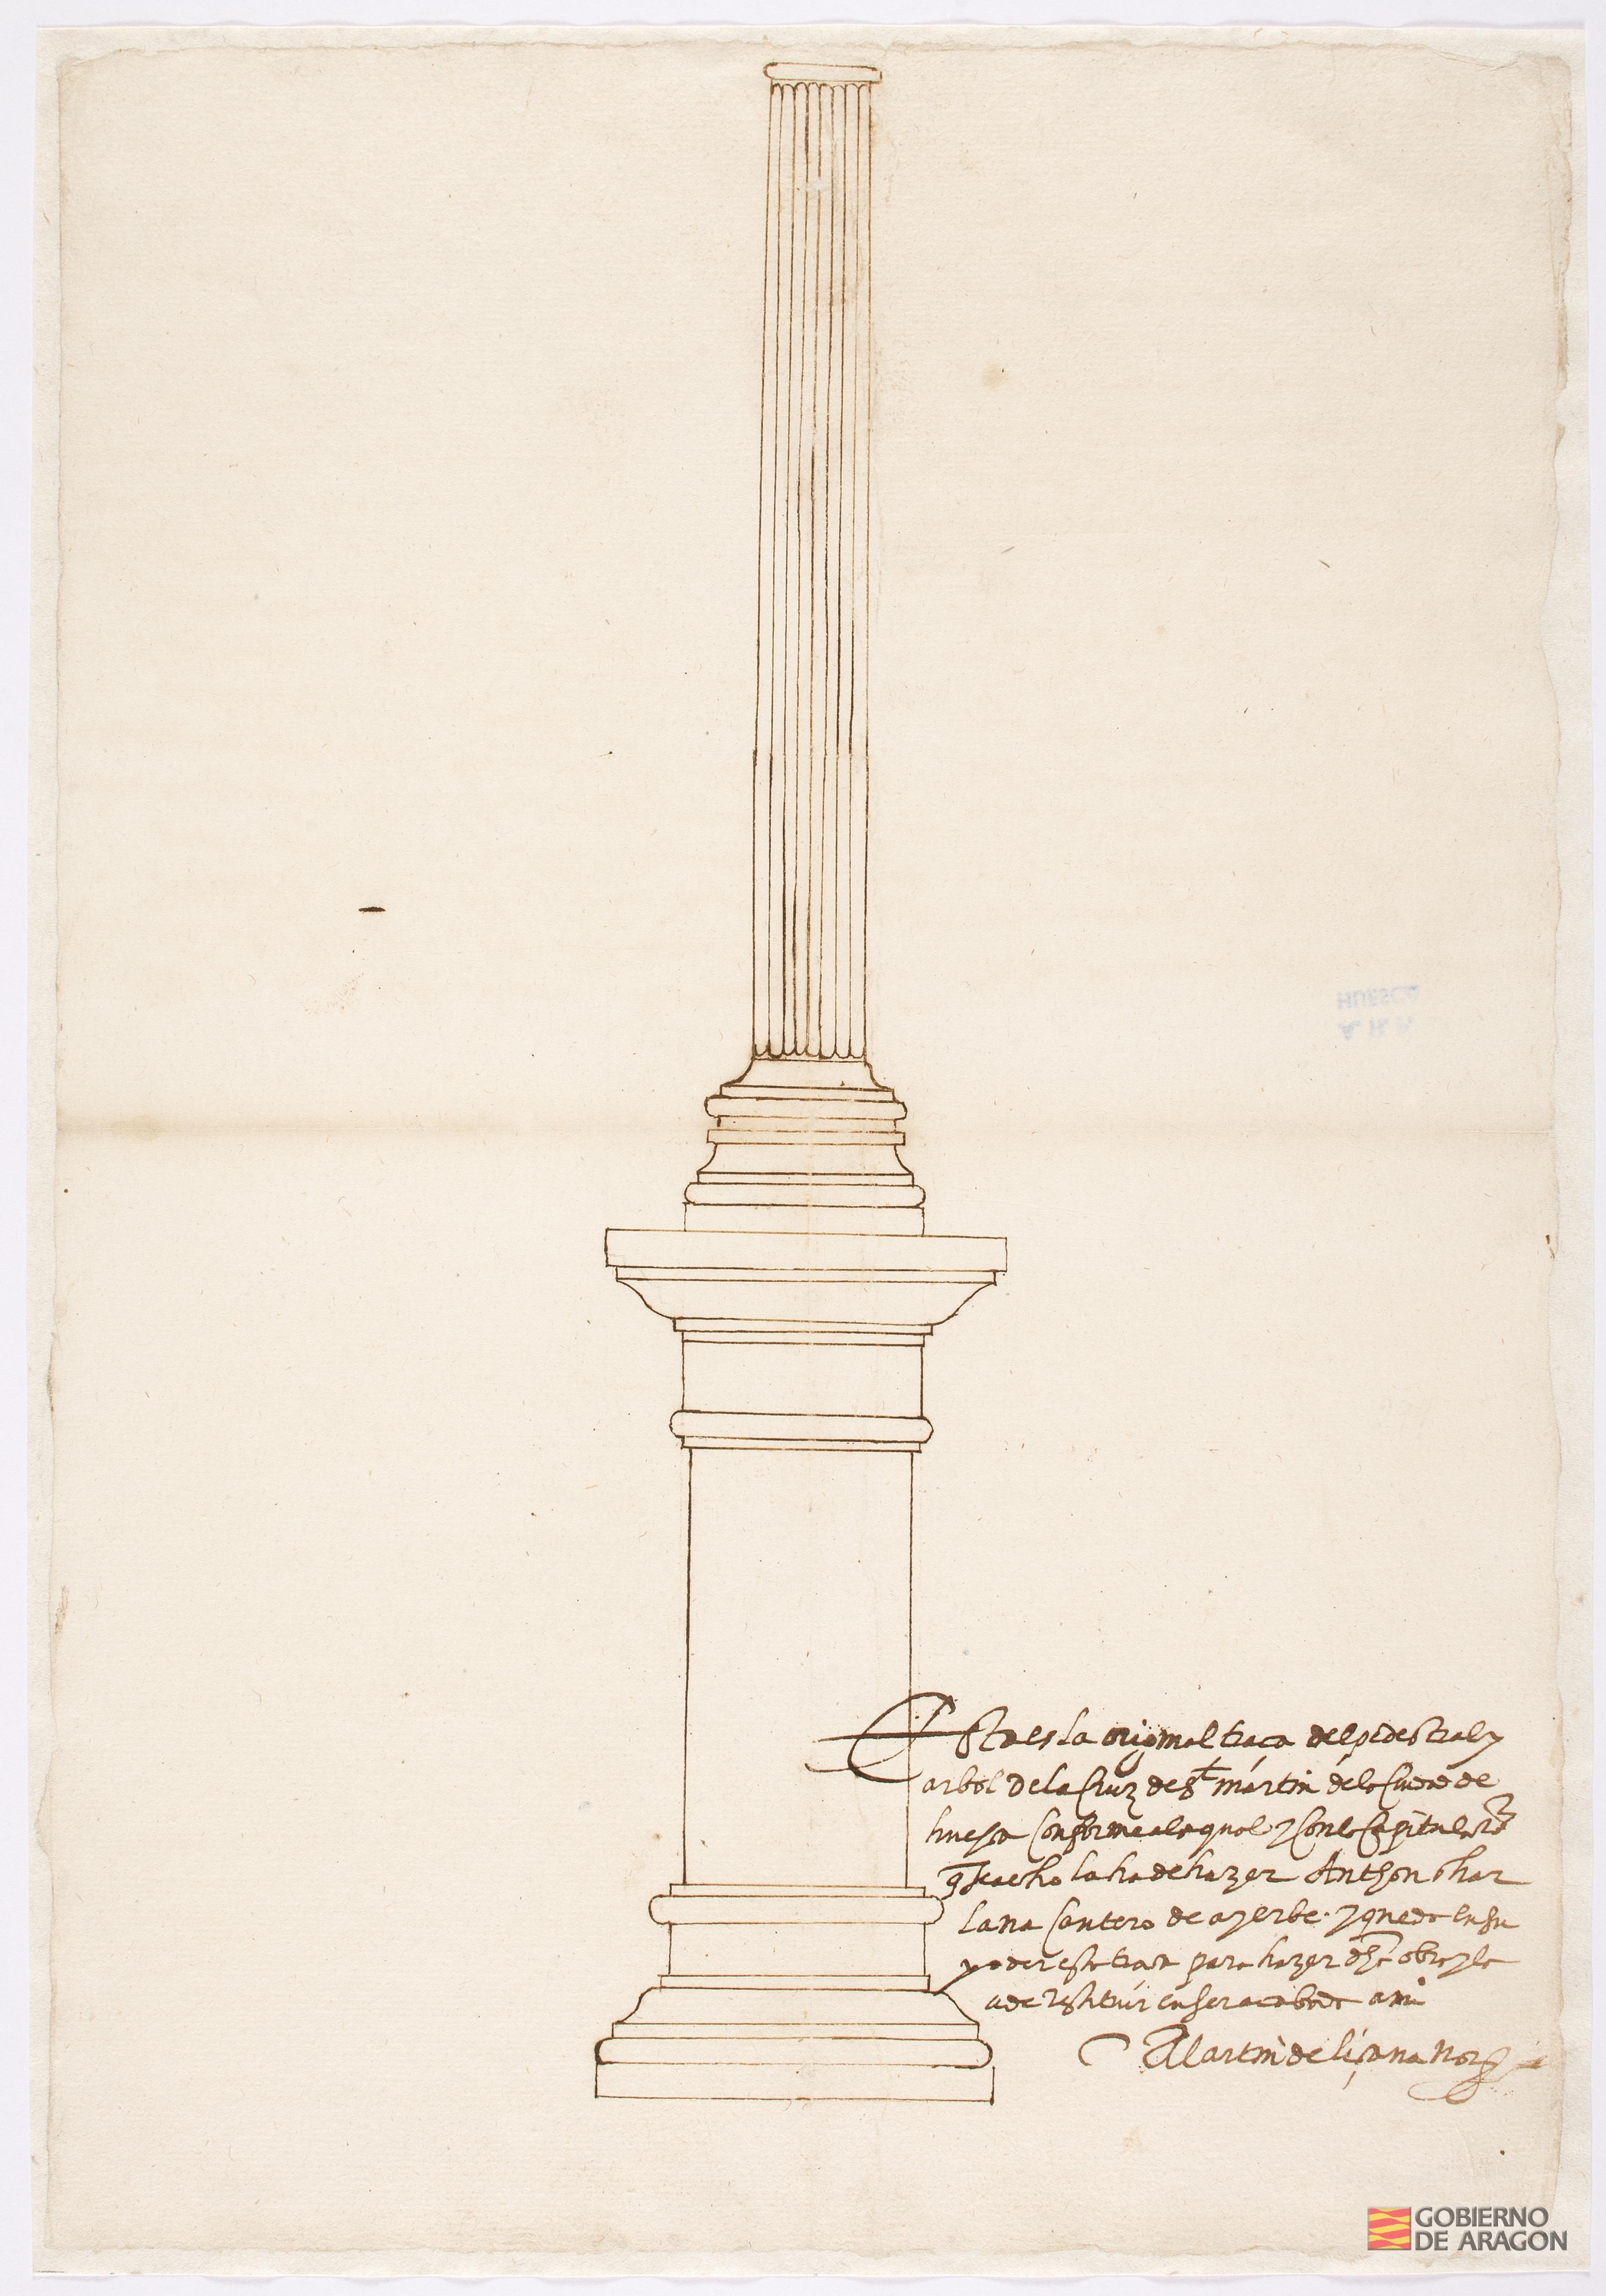 HUESCA
A. H. P.
Esta es la original traça del pedestral y
arbol de la Cruz de st martin de la Ciudad de
huesca Conforme a la qual y con la Capitulaon
q se a echo la ha de hazer Anthon
lana Cantero de ayerbe. y queda en su
poder esta traça para hazer dha obra y la
a de restituir en ser acabada a mi
Martin de liçana
GOBIERNO
DE ARAGON